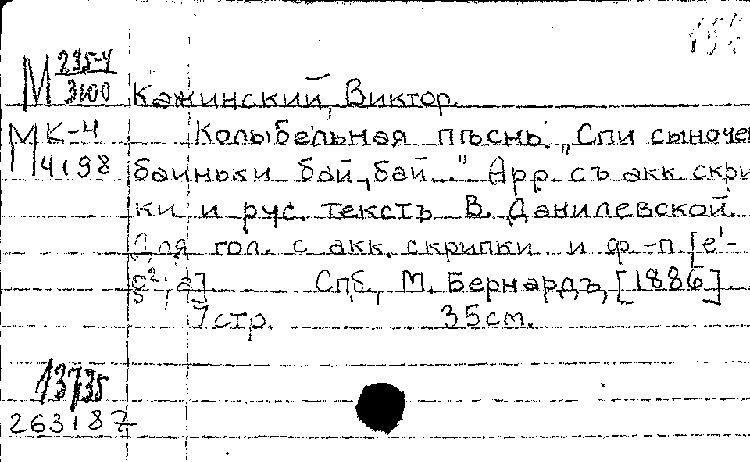 М 235-4
3100
Кажинский, Виктор.
М К-4
4198
Колыбельная пѣснь. „Спи сыноче
баиньки бай, бай..." Арр. съ акк. скри
ки и рус. текстъ В. Данилевской.
Для гол. с акк. скрипки и ф-п [e'-
g², a]. Спб., М. Бернардъ, [1886]
7 стр. 35 см.
13735
263187